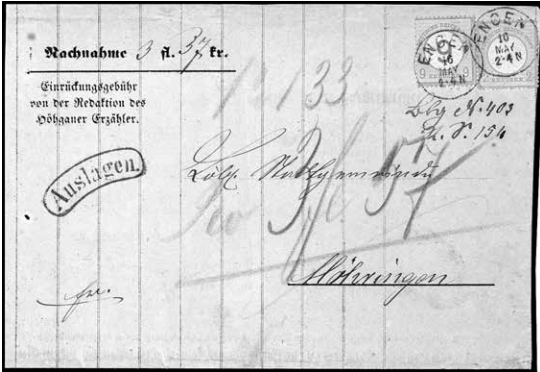 Nachnahme 3 fl. 37 kr.
Einrückungsgebühr
von der Redaktion des
Höhgauer Erzähler.
Auslagen.
ENGEN
16
MAY
2-4 N
ENGEN
16
MAY
2-4 N
9 9
133
N. 403
154
Löbl. Stadtgemeinde
3 fl 37
Möhringen
fr.